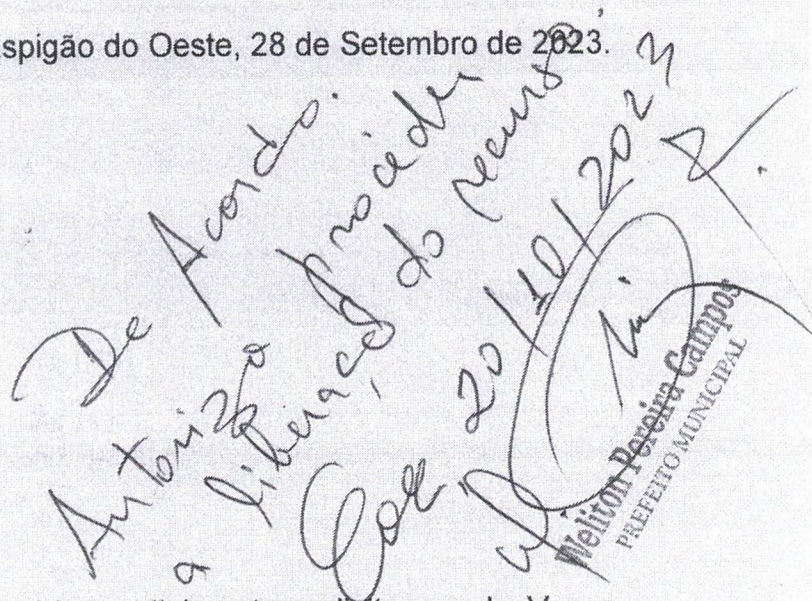 spigão do Oeste, 28 de Setembro de 2023.
De Acordo.
Autorizo proceder
a liberação do recurso
20/10/2023
Weliton Pereira Campos
PREFEITO MUNICIPAL